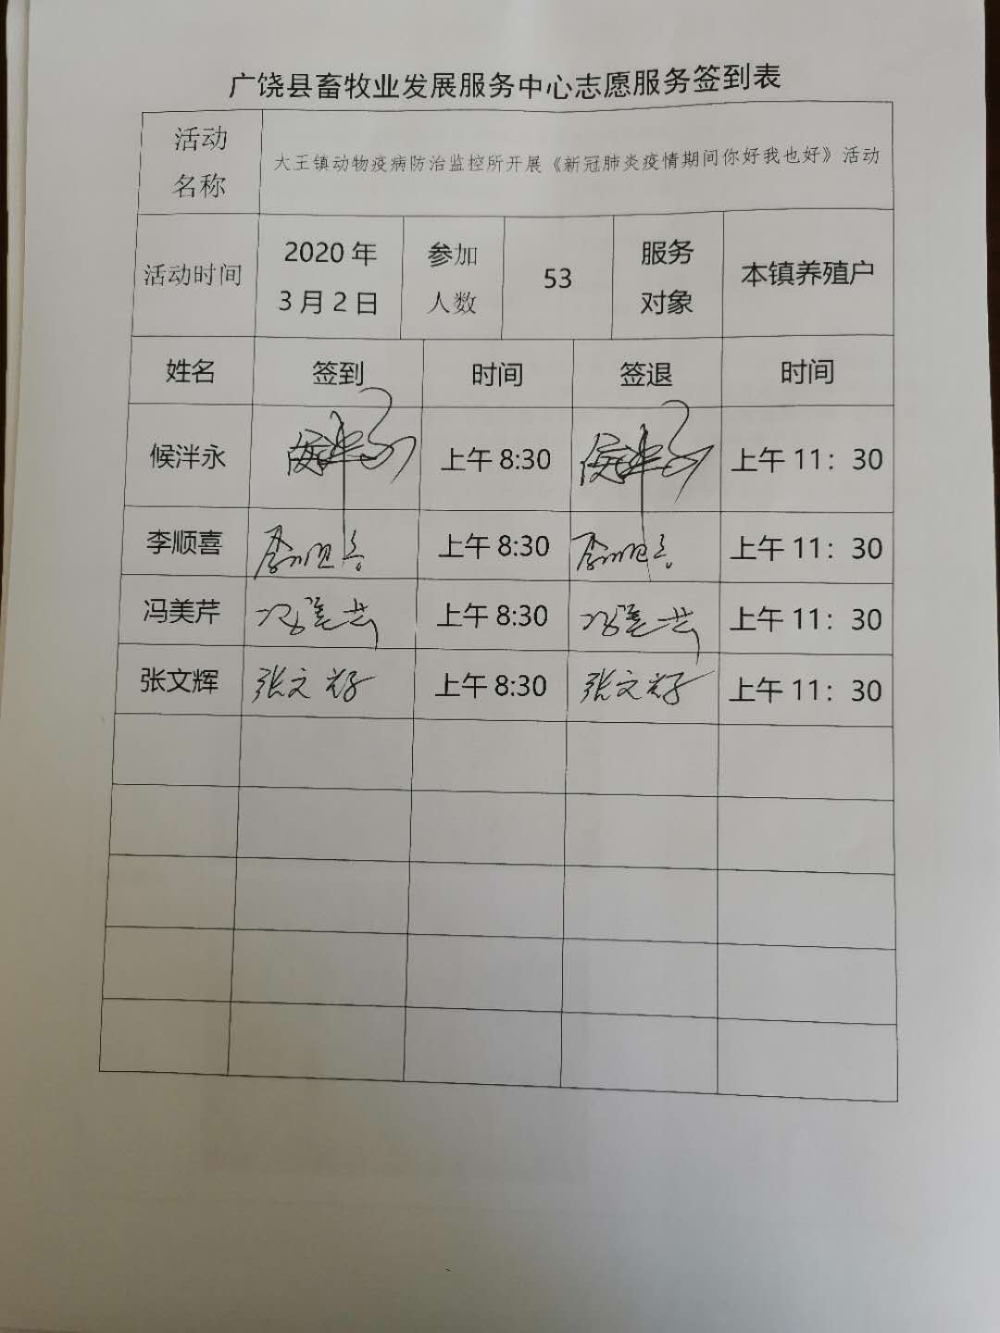 广饶县畜牧业发展服务中心志愿服务签到表
活动
名称
大王镇动物疫病防治监控所开展《新冠肺炎疫情期间你好我也好》活动
活动时间
2020 年
3 月 2 日
参加
人数
53
服务
对象
本镇养殖户
姓名 签到 时间 签退 时间
候泮永 侯泮永 上午 8:30 侯泮永 上午 11：30
李顺喜 李顺喜 上午 8:30 李顺喜 上午 11：30
冯美芹 冯美芹 上午 8:30 冯美芹 上午 11：30
张文辉 张文辉 上午 8:30 张文辉 上午 11：30